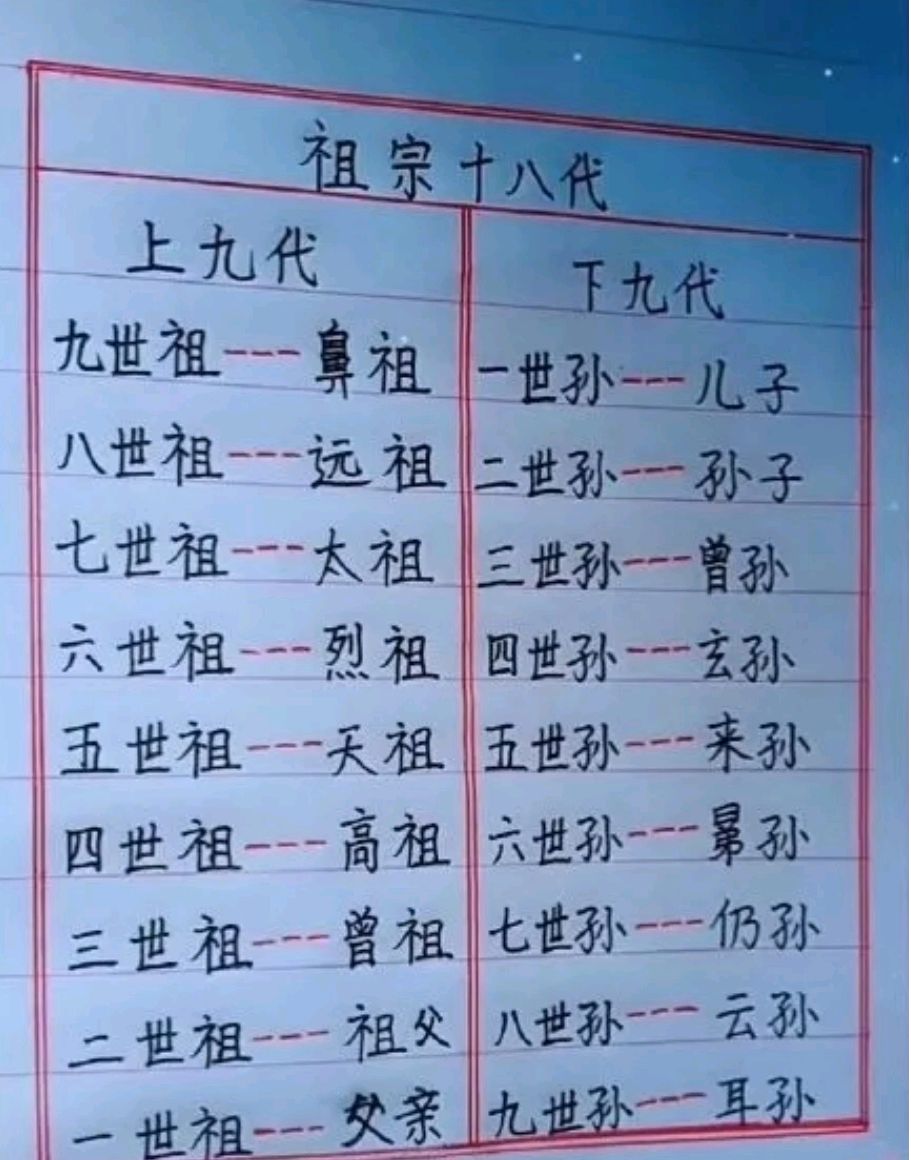 祖宗十八代
上九代
九世祖---鼻祖
八世祖---远祖
七世祖---太祖
六世祖---烈祖
五世祖---天祖
四世祖---高祖
三世祖---曾祖
二世祖---祖父
一世祖---父亲
下九代
一世孙---儿子
二世孙---孙子
三世孙---曾孙
四世孙---玄孙
五世孙---来孙
六世孙---晜孙
七世孙---仍孙
八世孙---云孙
九世孙---耳孙